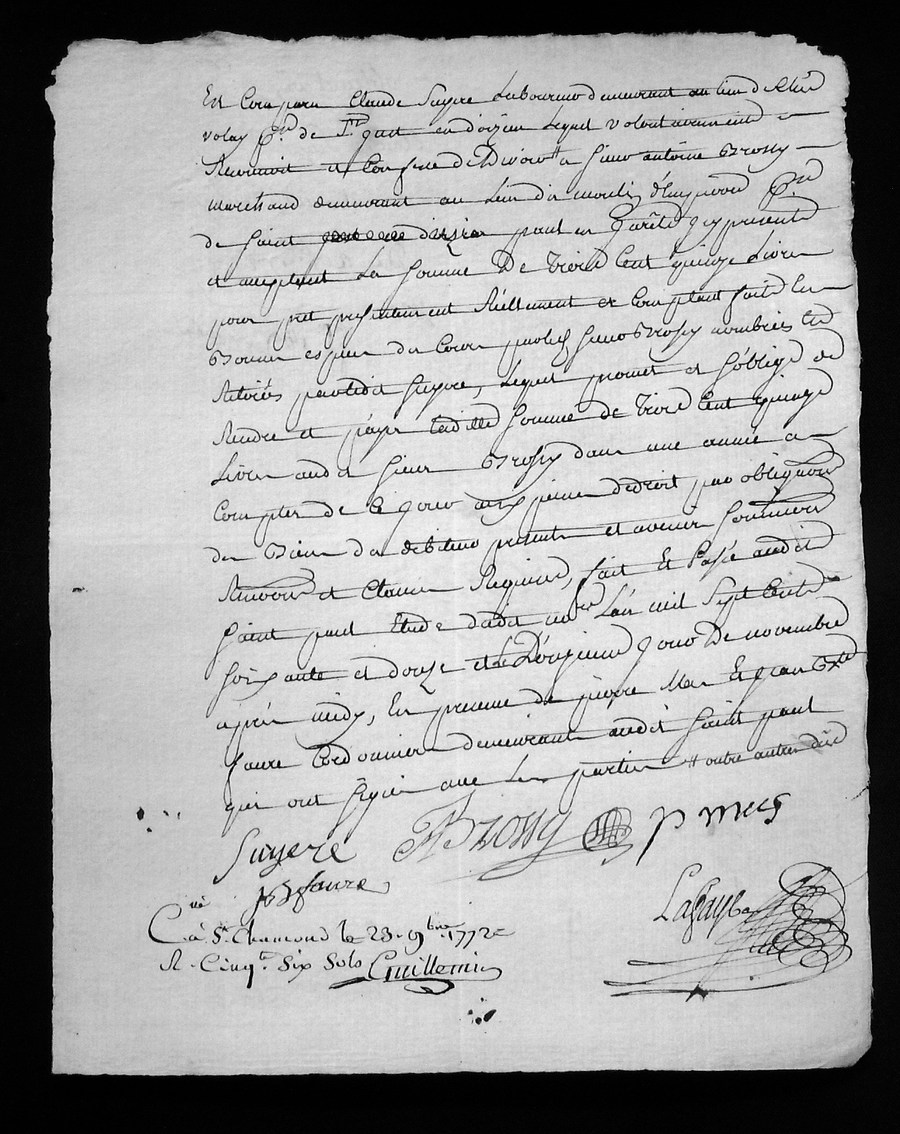 Est Comparu Claude Suyere Laboureur demeurant au lieu de
volay psse de St Just en doizieu Lequel volontairement
Reconnoit et Confesse devoir a Sieur antoine Brossy
marchand demeurant au Lieu du moulin psse
de Saint paul en Jarêtz icy present
et acceptant La Somme De Trois Cent quinze Livres
pour pret presentement Réellement et Comptant fait En
Bonnes espesses du Cours par led Sieur Brossy nombrées Et
Retirées par ledit Suyere, Lequel promet et S'oblige de
Rendre et payer Laditte Somme de Trois Cent quinze
Livres audit Sieur Brossy dans une année a
Compter de Ce jour aux peines de droit par obligation
des Biens du debiteur presents et avenir Soumissions
Renonciations et Clauses Requises, fait Et Passé audit
Saint paul Etude dudit nore L'an mil Sept Cent
Soixante et douze et Le Douzieme jour De novembre
apres midy, En presence de pierre Mees Et Jean Bte
faure Cordonniers demeurants audit Saint paul
qui ont Signé avec Les parties # outre autres dus
Suyere ABrossy p mees
JB faure
Lafayolle
C.lé à St Chamond le 23. 9bre 1772
R. Cinqte Six Sols Guillemin